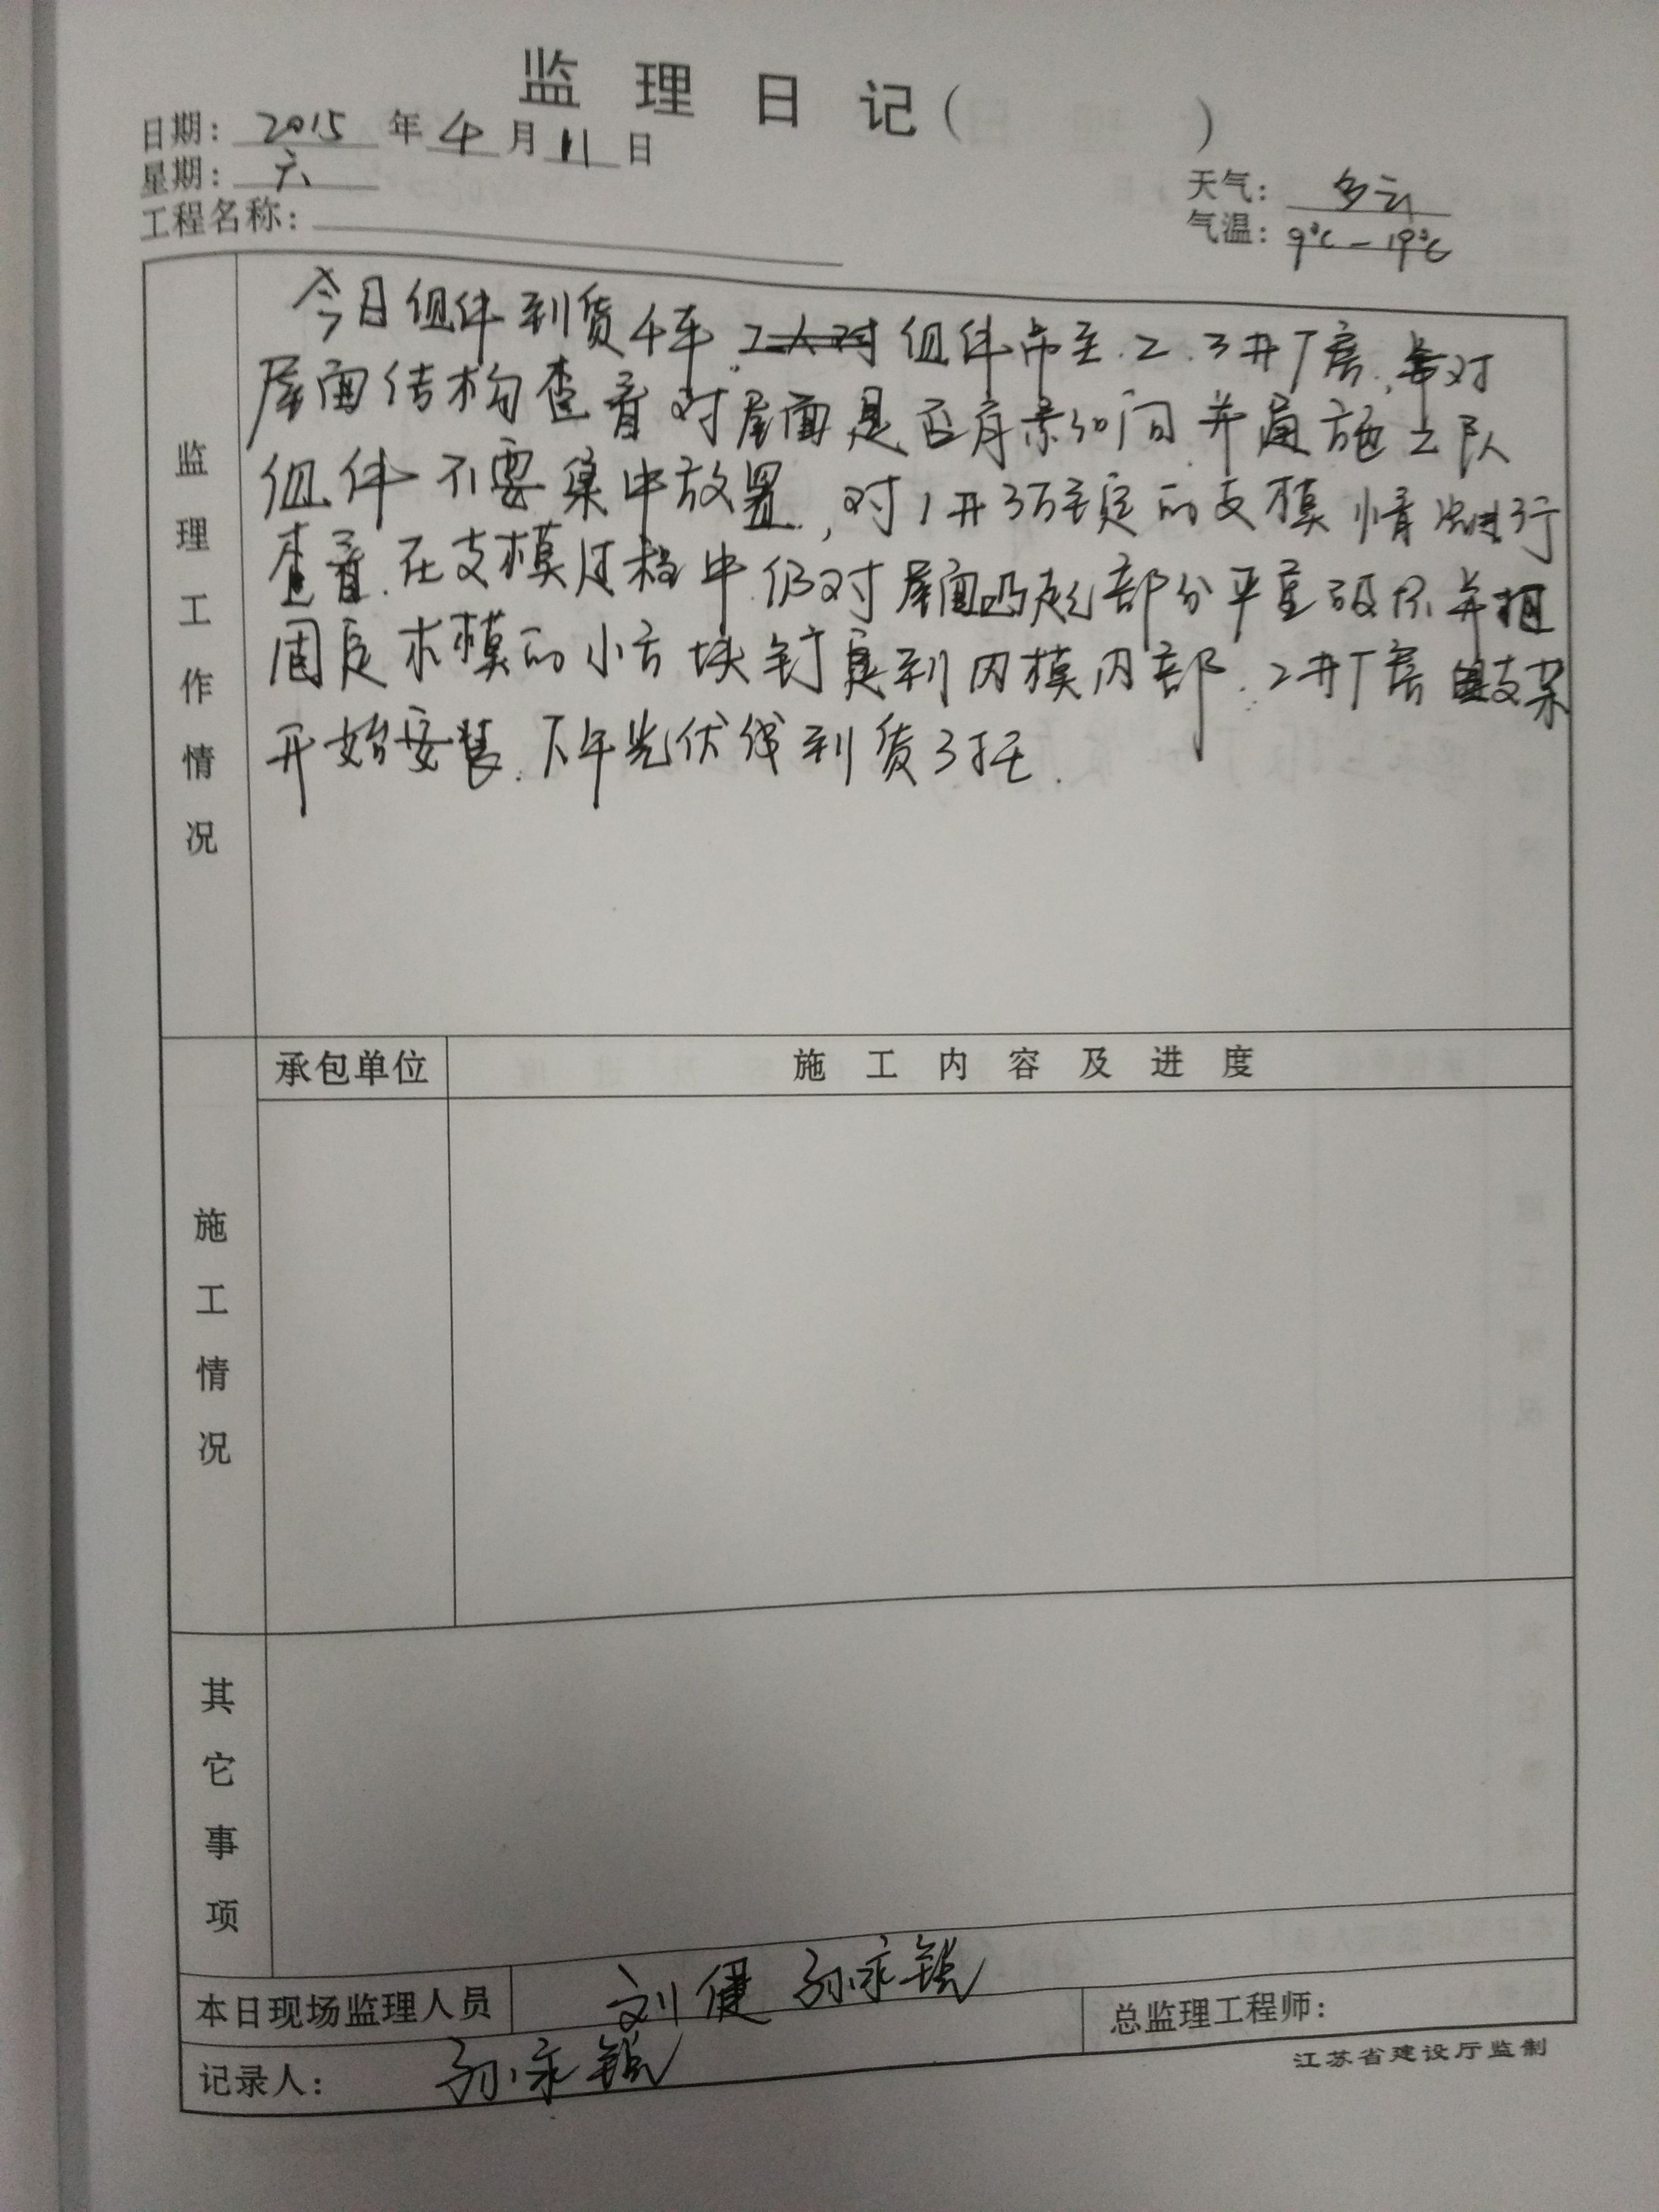 监理日记( )
日期: 2015 年 4 月 11 日
星期: 六
天气: 多云
工程名称:
气温: 9℃-19℃
监理工作情况
今日组件到货4车. 组件吊至.2.3#厂房,对
屋面结构查看对屋面是否有 问 并 施工队
组件不要集中放置,对1# 的支模情况进行
查看.在支模过程中仍对屋面凸起部分严重破坏并把
固定木模的小方块钉 到内模内部.2#厂房 支架
开始安装.下午光伏线到货3托.
承包单位
施工内容及进度
施工情况
其它事项
本日现场监理人员 刘健 孙
总监理工程师:
记录人: 孙
江苏省建设厅监制